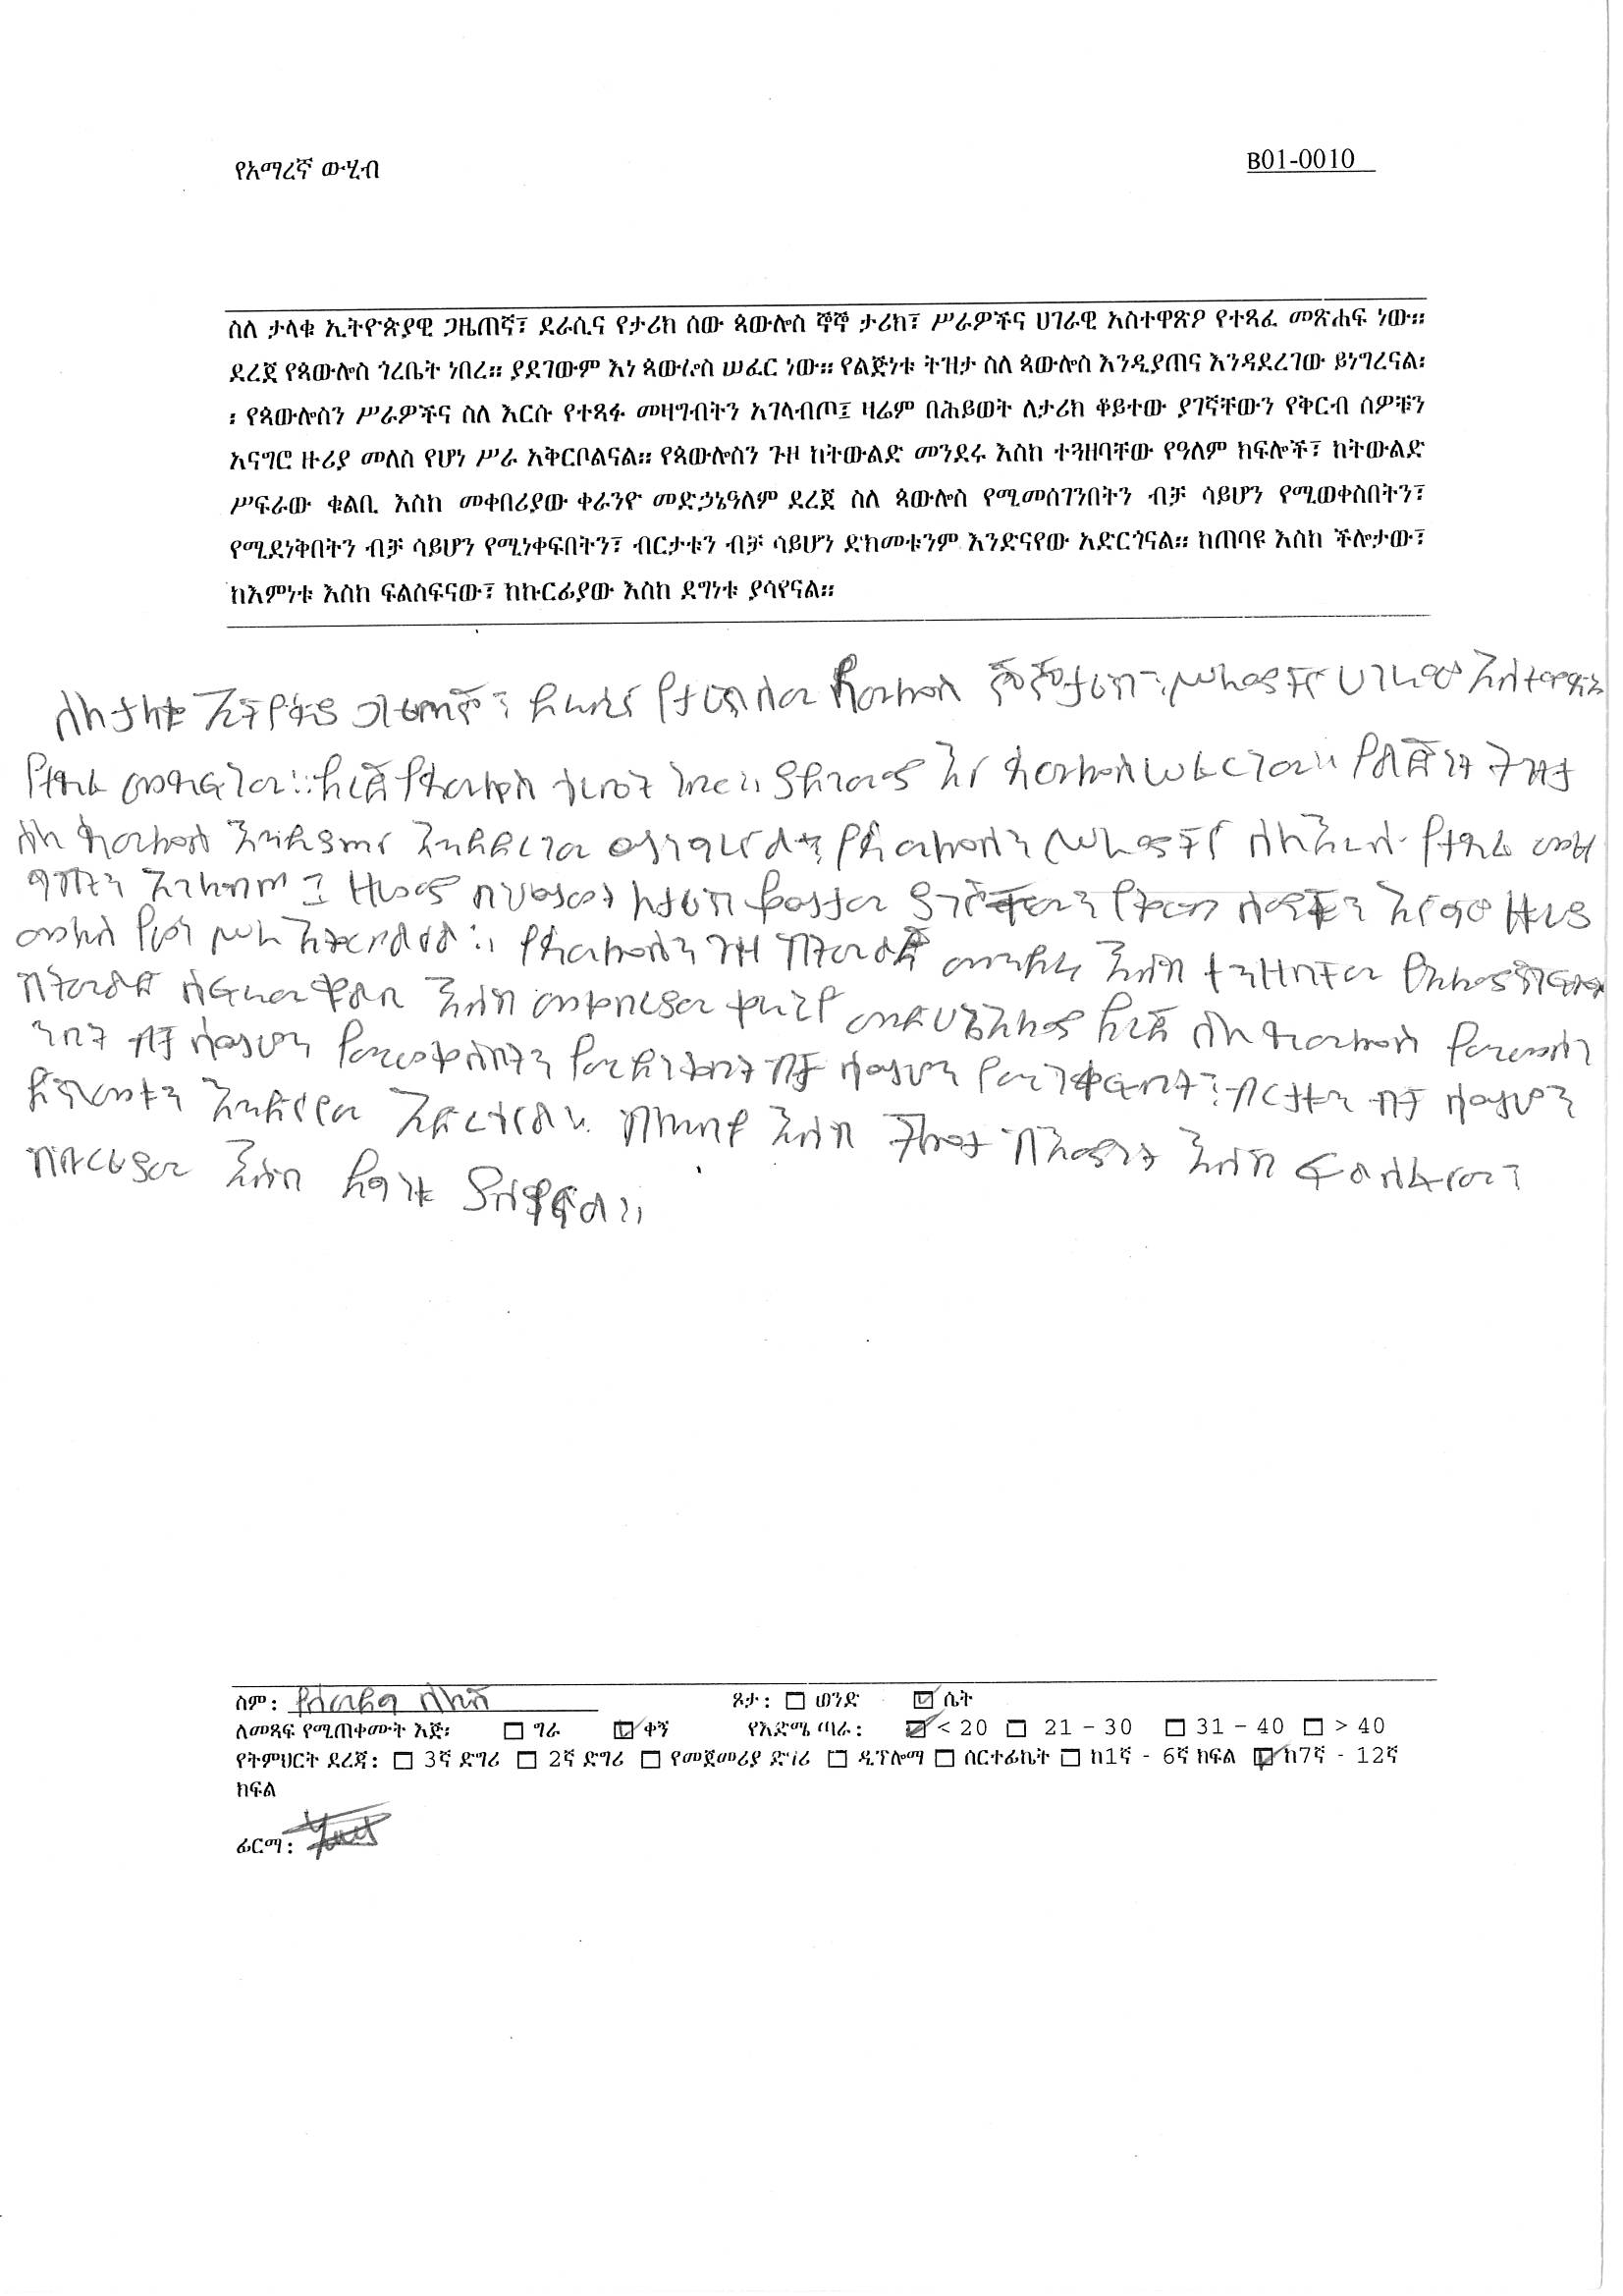 የአማረኛ ውሂብ
B01-0010
ስለ ታላቁ ኢትዮጵያዊ ጋዜጠኛ፣ ደራሲና የታሪክ ሰው ጳውሎስ ኞኞ ታሪክ፣ ሥራዎችና ሀገራዊ አስተዋጽዖ የተጻፈ መጽሐፍ ነው።
ደረጀ የጳውሎስ ጎረቤት ነበረ። ያደገውም እነ ጳውሎስ ሠፈር ነው። የልጅነቱ ትዝታ ስለ ጳውሎስ እንዲያጠና እንዳደረገው ይነግረናል፡
፡ የጳውሎስን ሥራዎችና ስለ እርሱ የተጻፉ መዛግብትን አገላብጦ፤ ዛሬም በሕይወት ለታሪክ ቆይተው ያገኛቸውን የቅርብ ሰዎቹን
አናግሮ ዙሪያ መለስ የሆነ ሥራ አቅርቦልናል። የጳውሎስን ጉዞ ከትውልድ መንደሩ እስከ ተጓዘባቸው የዓለም ክፍሎች፣ ከትውልድ
ሥፍራው ቁልቢ እስከ መቀበሪያው ቀራንዮ መድኃኔዓለም ደረጀ ስለ ጳውሎስ የሚመሰገንበትን ብቻ ሳይሆን የሚወቀስበትን፣
የሚደነቅበትን ብቻ ሳይሆን የሚነቀፍበትን፣ ብርታቱን ብቻ ሳይሆን ድክመቱንም እንድናየው አድርጎናል። ከጠባዩ እስከ ችሎታው፣
ከእምነቱ እስከ ፍልስፍናው፣ ከኩርፊያው እስከ ደግነቱ ያሳየናል።
ስለ ታላቁ ጋዜጠኛ፣ ደራሲና ጳውሎስ ኞኞ ታሪክ፣ ሥራዎችና ሀገራዊ
የተጻፈ መጽሐፍ ነው። ደረጀ የጳውሎስ ጎረቤት ነበረ። ያደገውም እነ ጳውሎስ ሠፈር ነው። የልጅነቱ ትዝታ
ስለ ጳውሎስ እንዲያጠና እንዳደረገው ይነግረናል። የጳውሎስን ሥራዎችና ስለ እርሱ የተጻፉ መዛ
ግብትን አገላብጦ፤ ዛሬም በሕይወት ለታሪክ ቆይተው ያገኛቸውን የቅርብ ሰዎቹን አናግሮ ዙሪያ
መለስ የሆነ ሥራ አቅርቦልናል። የጳውሎስን ጉዞ ከትውልድ መንደሩ እስከ
ከትውልድ ስፍራው ቁልቢ እስከ መቀበሪያው ቀራንዮ ደረጀ ስለ ጳውሎስ
ንበት ብቻ ሳይሆን የሚወቀስበትን የሚደነቅበት ብቻ ሳይሆን የሚነቀፍበት፣ ብርታቱን ብቻ ሳይሆን
ድክመቱን እንድናየው አድርጎናል። ከጠባዩ እስከ ችሎታው ከእምነቱ እስከ ፍልስፍናው፣
ከኩርፊያው እስከ ደግነቱ
ስም:
ጾታ: ወንድ ሴት
ለመጻፍ የሚጠቀሙት እጅ፡ ግራ ቀኝ የእድሜ ጣራ: < 20 21 – 30 31 – 40 > 40
የትምህርት ደረጃ: 3ኛ ድግሪ 2ኛ ድግሪ የመጀመሪያ ድግሪ ዲፕሎማ ሰርተፊኬት ከ1ኛ - 6ኛ ክፍል ከ7ኛ - 12ኛ
ክፍል
ፊርማ: